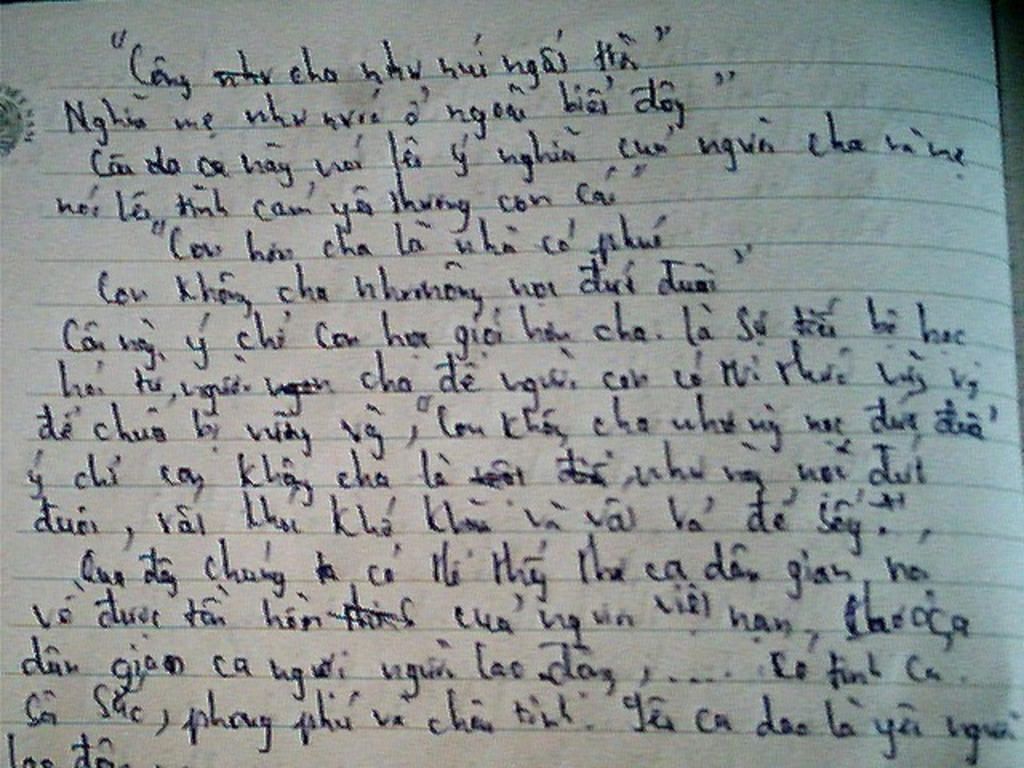 "Công cha như núi ngất trời"
Nghĩa mẹ như nước ở ngoài biển đông"
Câu da ca này nói lên ý nghĩa của người cha và mẹ
nói lên tình cảm yêu thương con cái"
"Con hơn cha là nhà có phúc
Con không cha như nòng nọc đứt đuôi"
Câu này, ý chỉ con học giỏi hơn cha. là sự tiến bộ học
hỏi từ người cha để người con có tri thức vững
để chuẩn bị vững, "Con không cha như nọc đứt đuôi"
ý chỉ con không cha là như nọc đứt
đuôi, rất khó khăn và vất vả để
Qua đây chúng ta có thể thấy thơ ca dân gian
được tâm hồn của người việt nam,
dân gian ca ngợi người lao động, ..... có tình ca
sâu sắc, phong phú và chân tình. Yêu ca dao là yêu người
lao động